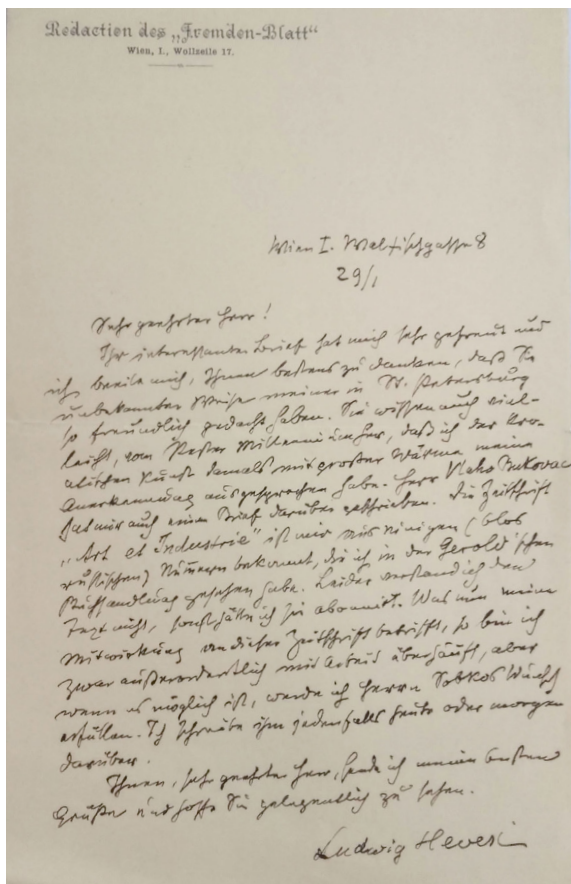 Redaction des „Fremden-Blatt“
Wien, I., Wollzeile 17.
Wien I. Walfischgasse 8
29/1
Sehr geehrter Herr!
Ihr interessanter Brief hat mich sehr gefreut und
ich beeile mich, Ihnen bestens zu danken, daß Sie
unbekannter Weise meiner in St. Petersburg
so freundlich gedacht haben. Sie wissen auch viel-
leicht, vom Pester Millennium her, daß ich der kro-
atischen Kunst damals mit großer Wärme meine
Anerkennung ausgesprochen habe. Herr Vlaho Bukovac
hat mir auch einen Brief darüber geschrieben. Die Zeitschrift
„Art et Industrie“ ist mir aus einigen (blos
russischen) Nummern bekannt, die ich in der Gerold'schen
Buchhandlung gesehen habe. Leider verstand ich den
Text nicht, sonst hätte ich sie abonnirt. Was nun meine
Mitwirkung an dieser Zeitschrift betrifft, so bin ich
zwar außerordentlich mit Arbeit überhäuft, aber
wenn es möglich ist, werde ich Herrn Sobkos Wunsch
erfüllen. Ich schreibe ihm jedenfalls heute oder morgen
darüber.
Ihnen, sehr geehrter Herr, sende ich meine besten
Grüße und hoffe Sie gelegentlich zu sehen.
Ludwig Hevesi